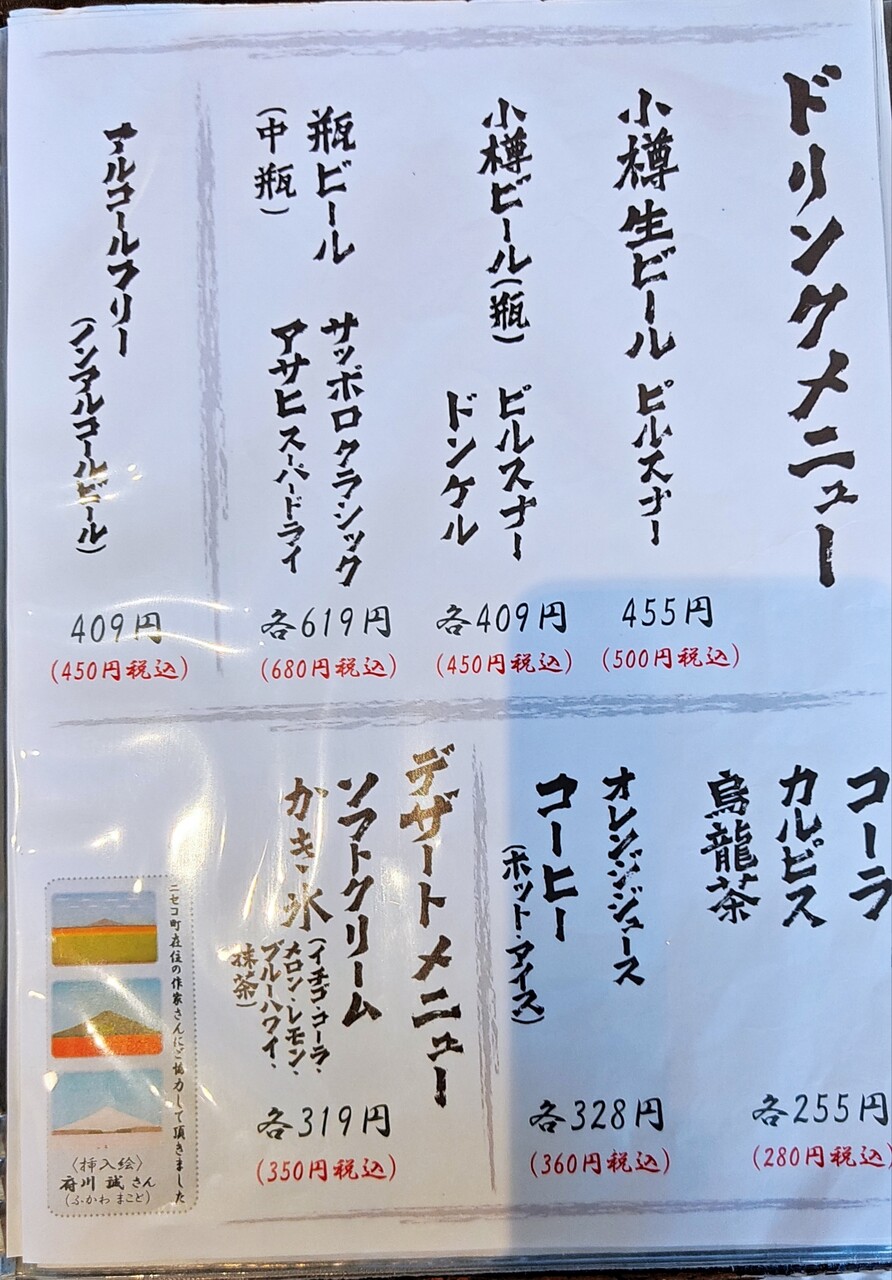 ドリンクメニュー
小樽生ビール ピルスナー
455円
(500円税込)
小樽ビール(瓶) ピルスナー
ドンケル
各409円
(450円税込)
瓶ビール サッポロクラシック
(中瓶) アサヒスーパードライ
各619円
(680円税込)
アルコールフリー
(ノンアルコールビール)
409円
(450円税込)
コーラ
カルピス
烏龍茶
各255円
(280円税込)
オレンジジュース
コーヒー
(ホット・アイス)
各328円
(360円税込)
デザートメニュー
ソフトクリーム
かき氷
(イチゴ・コーラ・
メロン・レモン・
ブルーハワイ・
抹茶)
各319円
(350円税込)
ニセコ町在住の作家さんにご協力して頂きました
〈挿入絵〉
府川 誠さん
(ふかわ まこと)